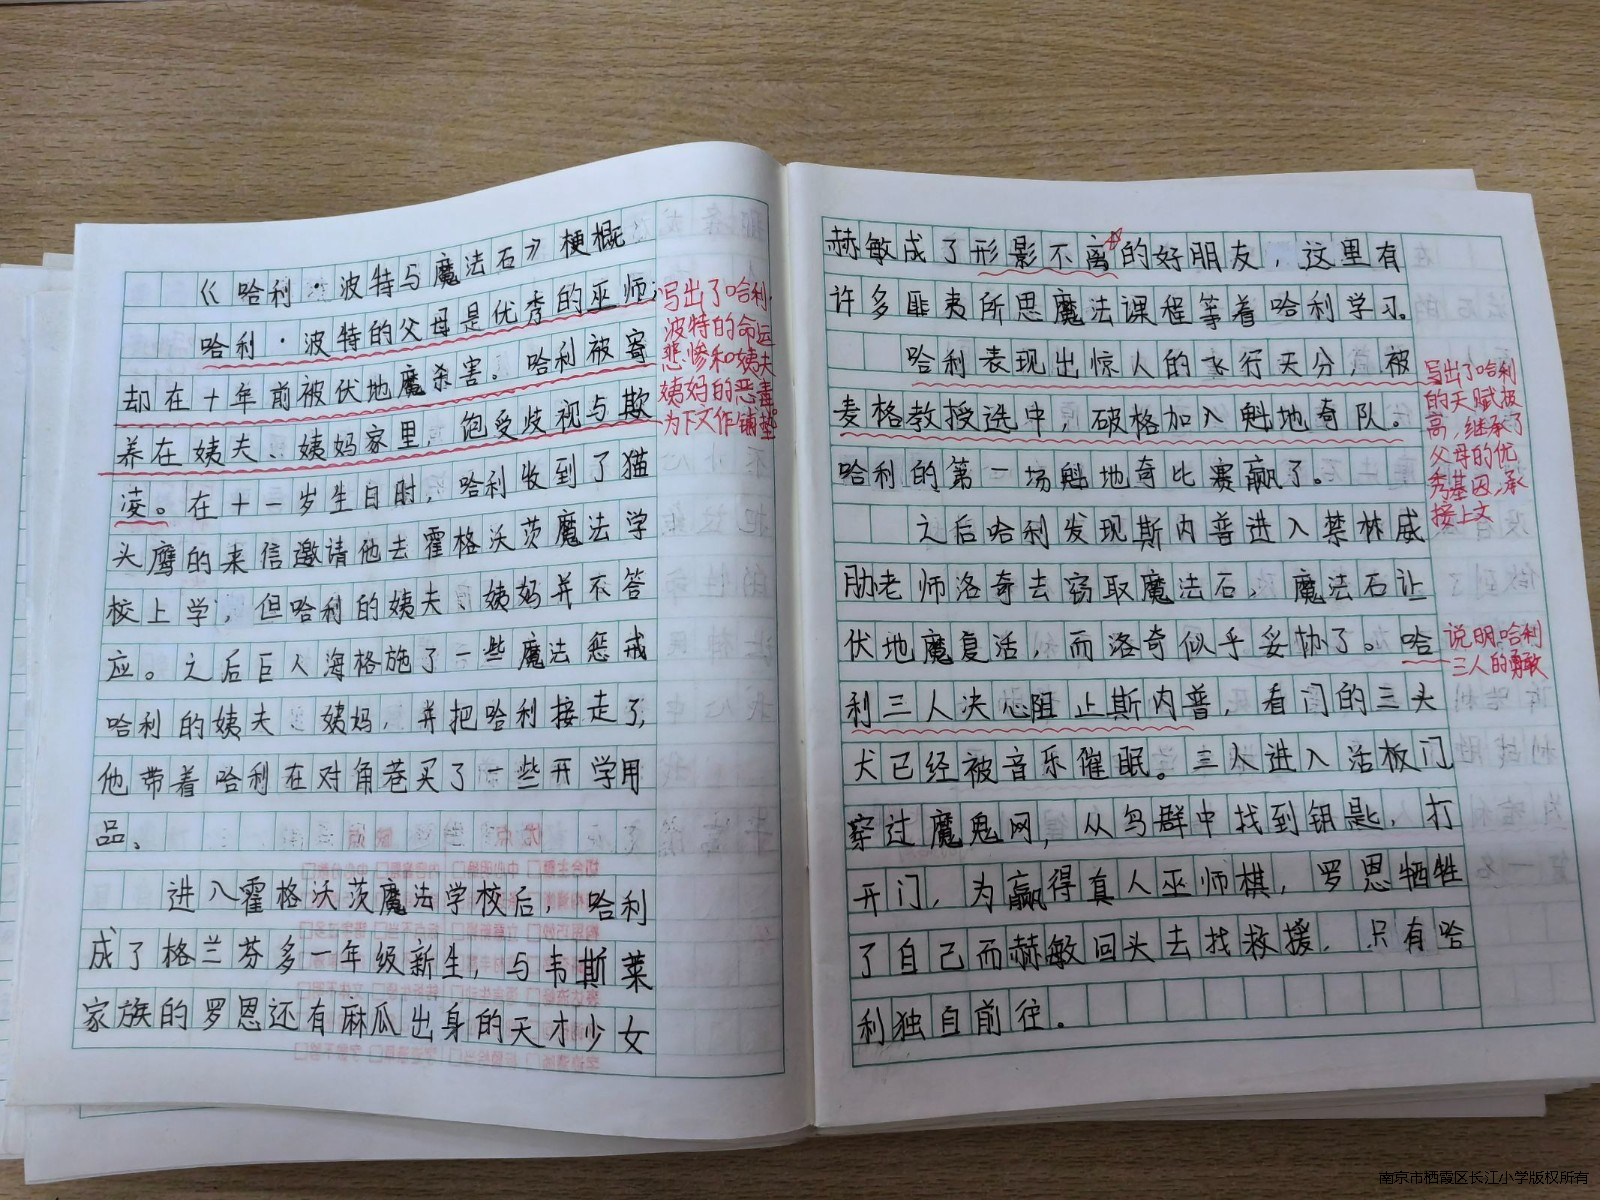 《哈利·波特与魔法石》梗概
哈利·波特的父母是优秀的巫师,
却在十年前被伏地魔杀害。哈利被寄
养在姨夫、姨妈家里,饱受歧视与欺
凌。在十一岁生日时,哈利收到了猫
头鹰的来信邀请他去霍格沃茨魔法学
校上学,但哈利的姨夫、姨妈并不答
应。之后巨人海格施了一些魔法惩戒
哈利的姨夫、姨妈,并把哈利接走了,
他带着哈利在对角巷买了一些开学用
品、
进入霍格沃茨魔法学校后,哈利
成了格兰芬多一年级新生,与韦斯莱
家族的罗恩还有麻瓜出身的天才少女
写出了哈利·
波特的命运
悲惨和姨夫
姨妈的恶毒
为下文作铺垫。
赫敏成了形影不离的好朋友,这里有
许多匪夷所思魔法课程等着哈利学习。
哈利表现出惊人的飞行天分,被
麦格教授选中,破格加入魁地奇队。
哈利的第一场魁地奇比赛赢了。
之后哈利发现斯内普进入禁林威
胁老师洛奇去窃取魔法石,魔法石让
伏地魔复活,而洛奇似乎妥协了。哈
利三人决心阻止斯内普,看门的三头
犬已经被音乐催眠。三人进入活板门
穿过魔鬼网,从鸟群中找到钥匙,打
开门,为赢得真人巫师棋,罗恩牺牲
了自己而赫敏回头去找救援,只有哈
利独自前往。
写出了哈利
的天赋极
高,继承了
父母的优
秀基因,承
接上文
说明哈利
三人的勇敢
南京市栖霞区长江小学版权所有